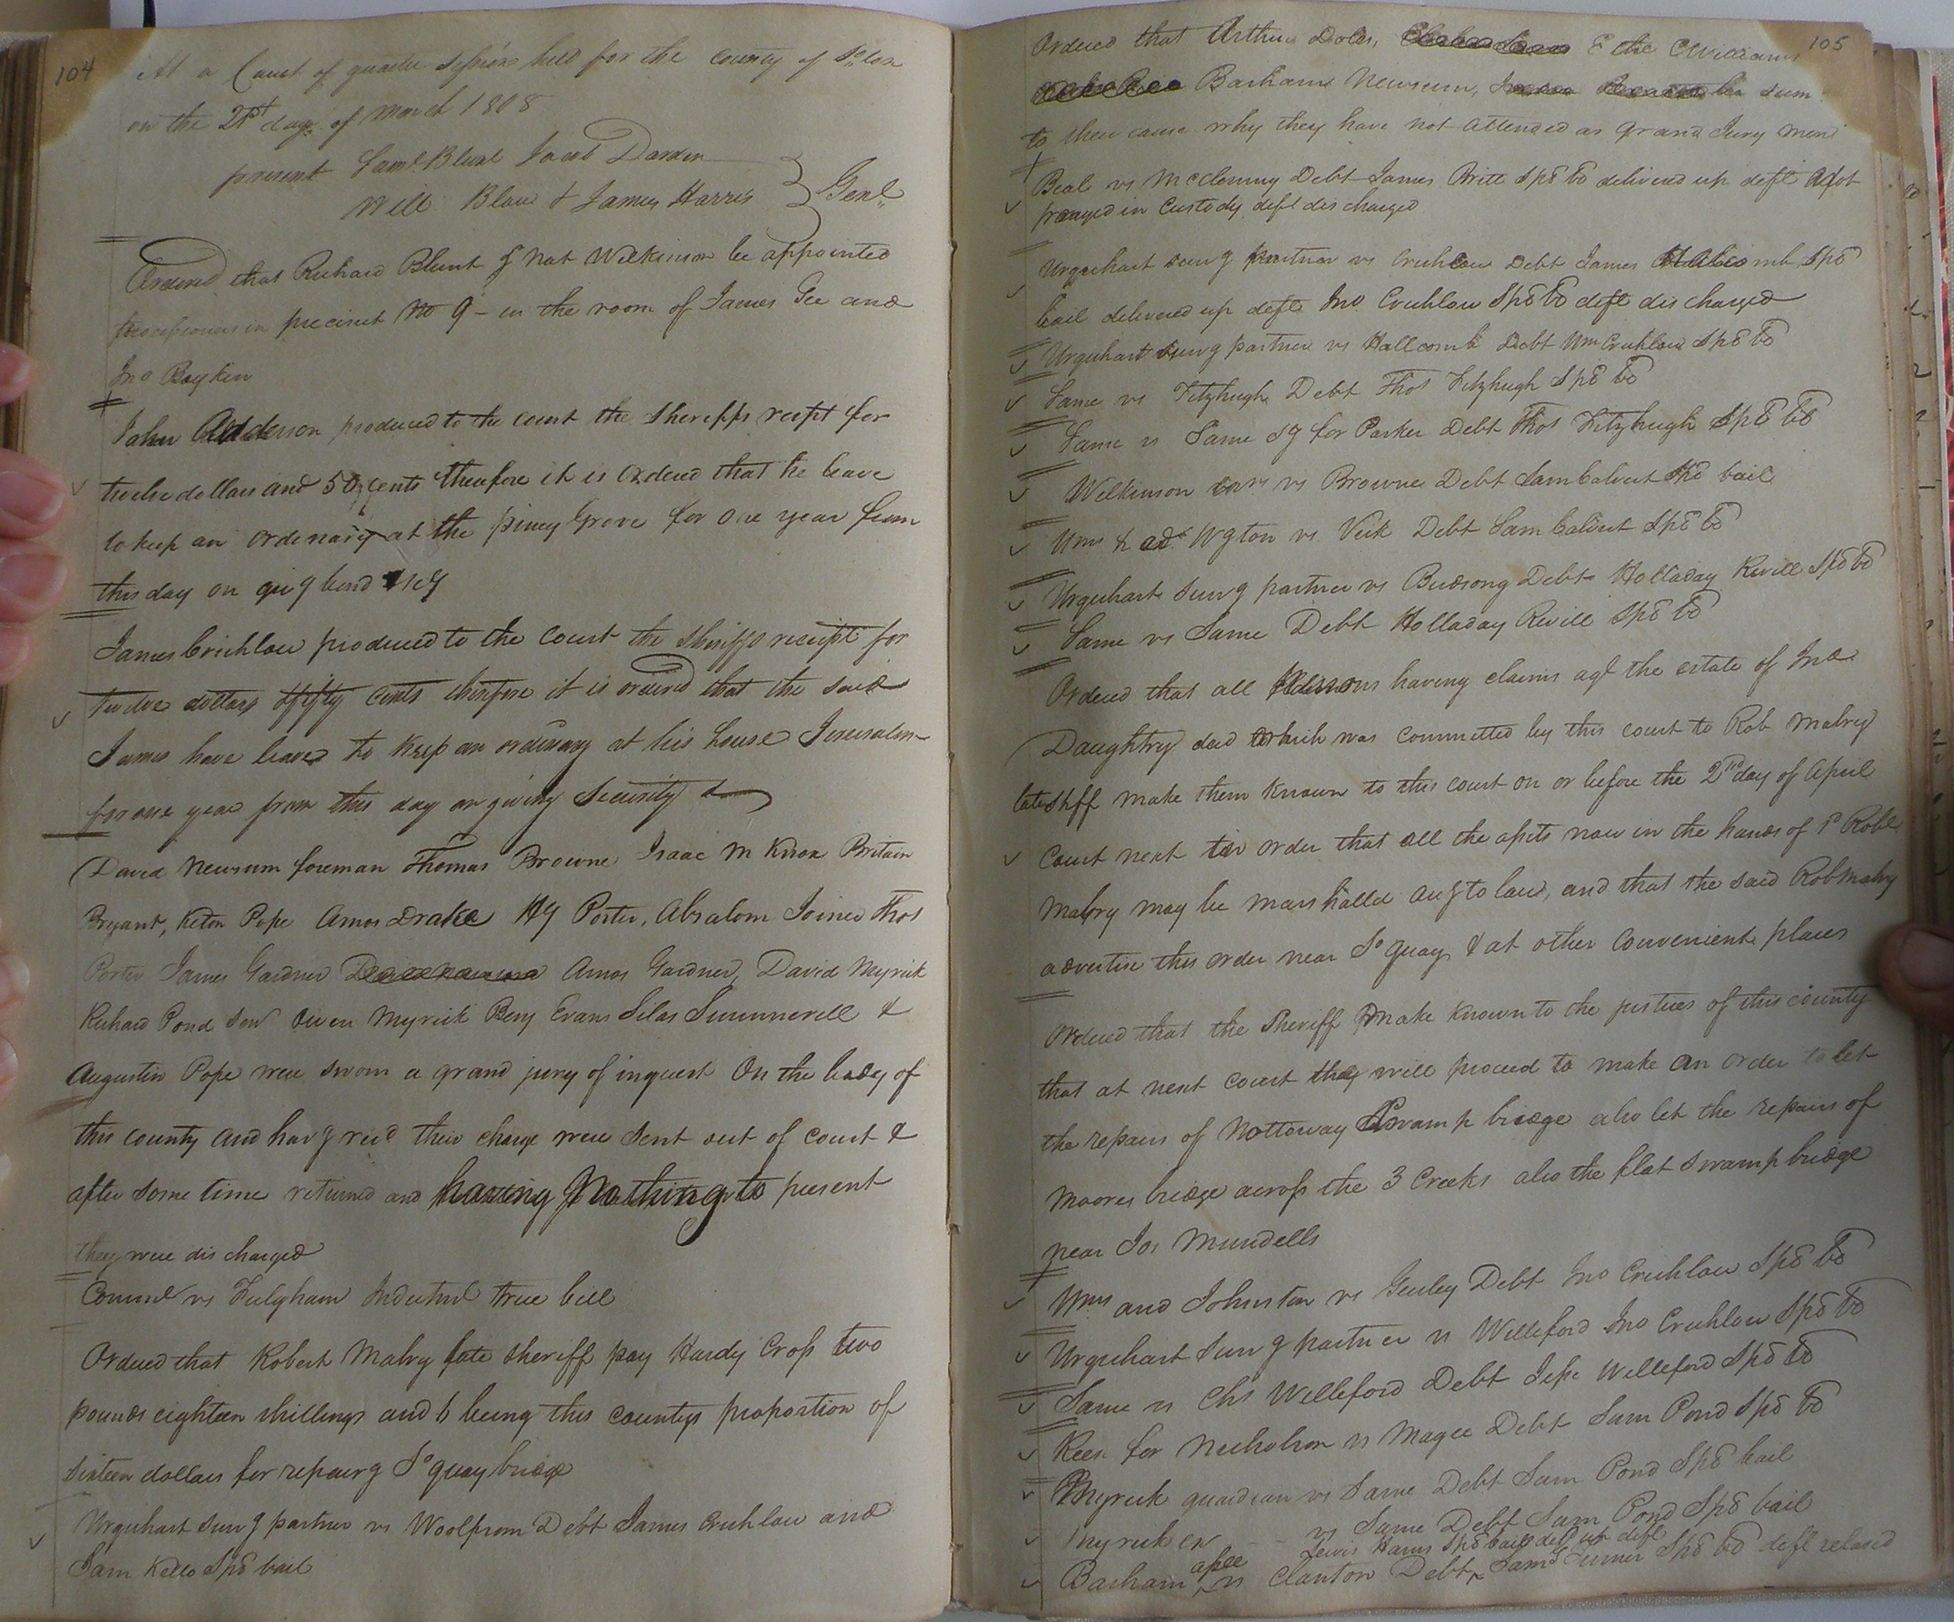 104
At a Court of quarter Sessions held for the county of So:ton
on the 21st day of March 1808
present Saml. Blunt Jacob Darden
Will Blow & James Harris } Gent.
Ordered that Richard Blunt & Nat Wilkinson be appointed
processioners in precinct No 9 - in the room of James Gee and
Jno Boykin
John Adderson produced to the court the sheriffs reciept for
twelve dollars and 50 cents therefore it is ordered that he leave
to keep an ordenary at the piney Grove for one year from
this day on givg bond
James Crichlow produced to the Court the Sheriffs receipt for
twelve dollars & fifty cents therefore it is ordered that the said
James have leave to keep an ordinary at his house Jerusalem
for one year from this day on giving Security &
David Newsum foreman Thomas Browne Isaac M Knox Britain
Bryant, Keton Pope Amos Drake Hy Porter, Absalom Joiner Thos
Porter James Gardner Amos Gardner, David Myrick
Richard Pond Senr Owen Myrick Benj Evans Silas Summerell &
Augustin Pope were sworn a grand jury of inquest On the body of
this county and havg recd their charge were sent out of court &
after some time returned and having Nothing to present
they were discharged
Commth vs Fulgham Indictmt true bill
Ordered that Robert Mabry late sheriff pay Hardy Cross two
pounds eighteen shillings and 6 being this countys proportion of
sixteen dollars for repairg So quay bridge
Urquhart survg partner vs Woolfrom Debt James Crichlow and
Sam Kello Spē bail
105
Ordered that Arthur Doles, & the CWilliams
Barham Newsum, sum
to shew cause why they have not attended as Grand Jury men
Beal vs McClenny Debt James Britt Spē bō delivered up deft
prayed in Custody deft discharged
Urquhart survg partner vs Crichlow Debt James Spē
bail delivered up deft Jno Crichlow Spē bō deft discharged
Urquhart survg partner vs Hallcomb Debt Wm Crichlow Spē bō
Same vs Fitzhugh Debt Thos Fitzhugh Spē bō
Same vs Same for Parker Debt Thos Fitzhugh Spē bō
Wilkinson vs Browne Debt Sam Calvert Spē bail
Wms & ads Wgton vs Vick Debt Sam Calvert Spē bō
Urquhart survg partner vs Birdsong Debt Holladay Revill Spē bō
Same vs Same Debt Holladay Revill Spē bō
Ordered that all persons having claims agt the estate of Jno
Daughtry decd which was committed by this court to Rob Mabry
late shff make them known to this court on or before the 2nd day of April
Court next in order that all the assets now in the hands of sd Robt
Mabry may be marshalled accg to law, and that the said Rob Mabry
advertise this order near So quay & at other Convenient places
Ordered that the Sheriff make known to the justices of this county
that at next court they will proceed to make an order to let
the repairs of Nottoway Swamp bridge also let the repairs of
Moores bridge across the 3 Creeks also the flat swamp bridge
near Jos Mundells
Wms and Johnston vs Gurley Debt Jno Crichlow Spē bō
Urquhart survg partner vs Williford Jno Crichlow Spē bō
Same vs Chs Williford Debt Jesse Williford Spē bō
Rees for Nicholson vs Magee Debt Sam Pond Spē bō
Myrick guardian vs Same Debt Sam Pond Spē bail
Myrick ex vs Same Debt Sam Pond Spē bail
Lewis Harris Spē bail deld up deft
Barham assee vs Clanton Debt Saml Turner Spē bō deft relasd